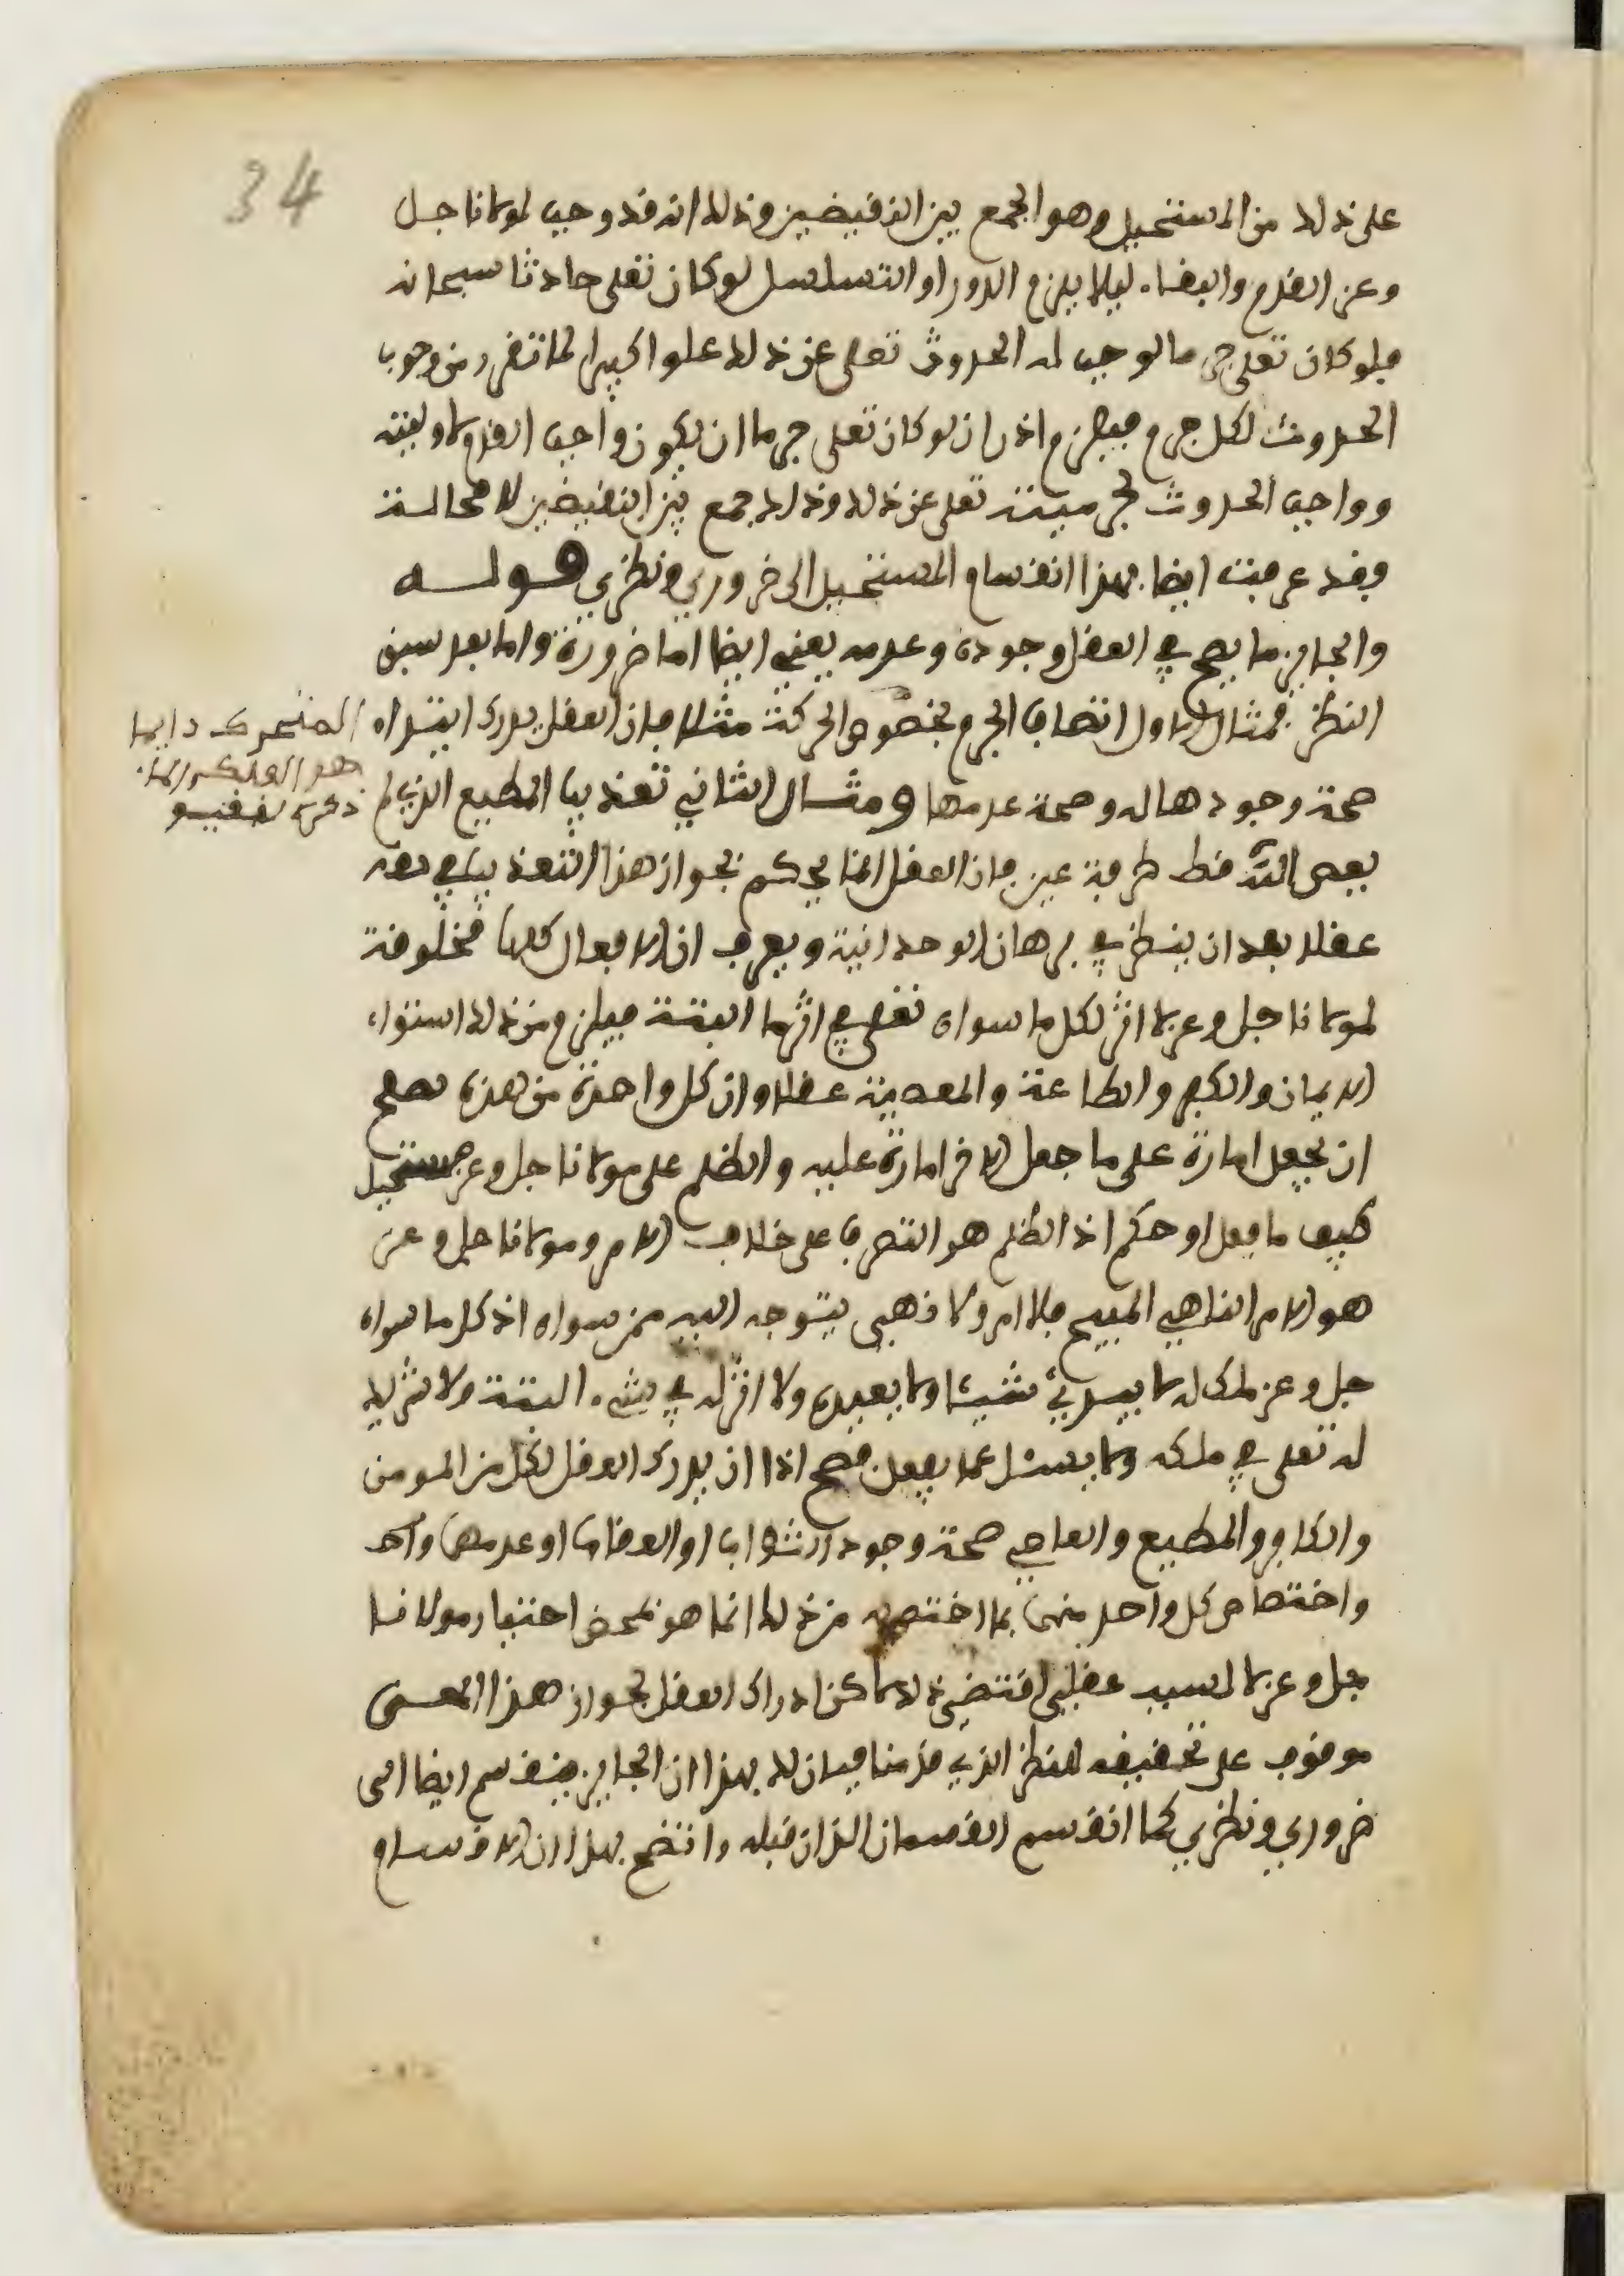 34
على ذلك من المستحيل وهو الجمع بين النقيضين وذلك انه قد وجب لمولانا جل
وعز القدم والبقاء ليلا يلزم الدور او التسلسل لو كان تعلى حادثا سبحانه
فلو كان تعلى جرما لوجب له الحدوث تعلى عن ذلك علوا كبيرا لما تقرر من وجوب
الحدوث لكل جرم فيلزم اذن ان لو كان تعلى جرما ان يكون واجب القدم لاولهيته
وواجب الحدوث لجرميته تعلى عن ذلك وذلك جمع بين النقيضين لا محالة
وقد عرفت ايضا بهذا انقسام المستحيل الى ضروري ونظري قوله
والجايز ما يصح في العقل وجوده وعدمه يعني ايضا اما ضرورة واما بعد سبق
النظر فمثال الاول اتصاف الجرم بخصوص الحركة مثلا فان العقل يدرك ابتداء
المتحرك دايما
هو الفلك
صحة وجودها له وصحة عدمها ومثال الثاني تعذيب المطيع الذي لم
يعص الله قط طرفة عين فان العقل انما يحكم بجواز هذا التعذيب في حقه
عقلا بعد ان ينظر في برهان الوحدانية ويعرف ان الافعال كلها مخلوقة
لمولانا جل وعز لا اثر لكل ما سواه تعلى في اثر ما البتة فيلزم من ذلك استواء
الايمان والكفر والطاعة والمعصية عقلا وان كل واحدة من هذه يصلح
ان يجعل امارة على ما جعل الاخر امارة عليه والظلم على مولانا جل وعز مستحيل
كيف ما فعل او حكم اذ الظلم هو التصرف على خلاف الامر ومولانا جل وعز
هو الامر الناهي المبيح فلا امر ولا نهي يتوجه اليه ممن سواه اذ كل ما سواه
جل وعز ملك له لا يبدئ شيئا ولا يعيده ولا اثر له في شيء البتة ولا شريك
له تعلى في ملكه ولا يسئل عما يفعل فصح اذا ان يدرك العقل لكل من المومن
والكافر والمطيع والعاصي صحة وجود الثواب او العقاب او عدمهما واحد
واختصاص كل واحد منهما بما اختص به من ذلك انما هو بمحض اختيار مولانا
جل وعز لا لسبب عقلي اقتضى ذلك لاكن ادراك العقل لجواز هذا المعنى
موقوف على تحقيق النظر الذي قدمنا فبان لك بهذا ان الجايز ينقسم ايضا الى
ضروري ونظري كما انقسم القسمان اللذان قبله واتضح بهذا ان الاقسام